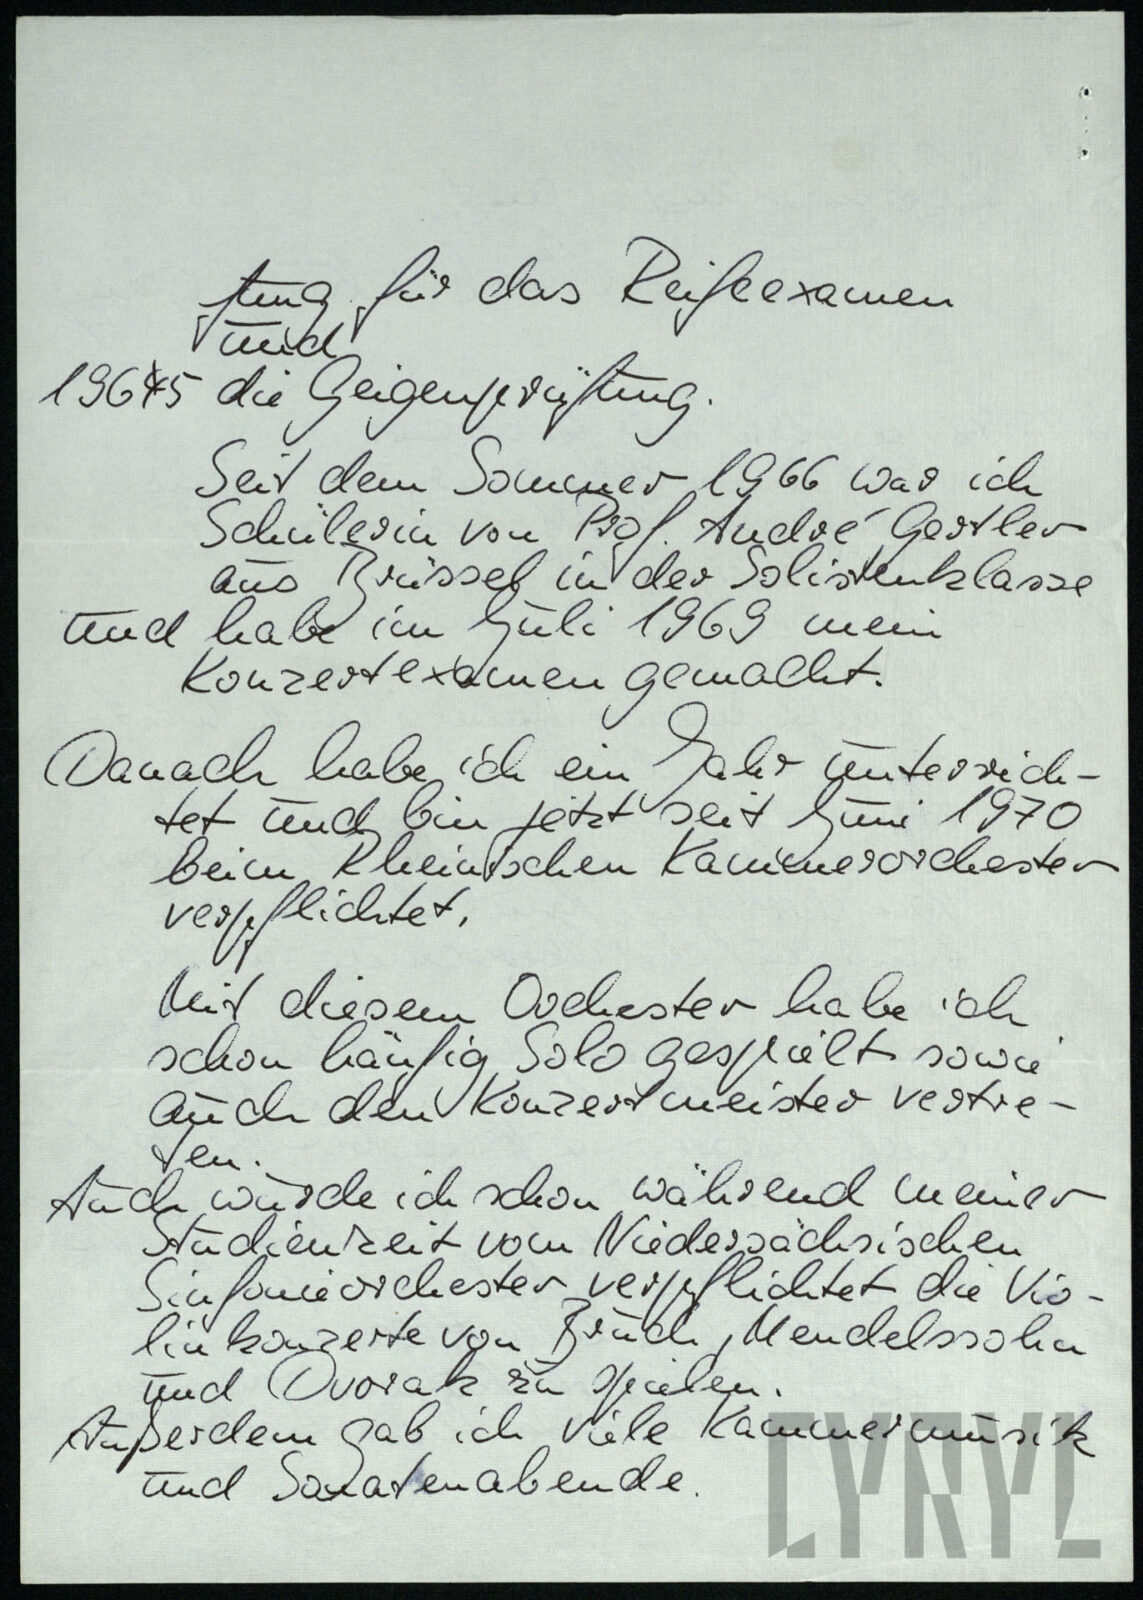 fung für das Reifeexamen
und
1965 die Geigenprüfung.
Seit dem Sommer 1966 war ich
Schülerin von Prof. André Gertler
aus Brüssel in der Solistenklasse
und habe im Juli 1969 mein
Konzertexamen gemacht.
Danach habe ich ein Jahr unterrich-
tet und bin jetzt seit Juni 1970
beim Rheinischen Kammerorchester
verpflichtet.
Mit diesem Orchester habe ich
schon häufig Solo gespielt sowie
auch den Konzertmeister vertre-
ten.
Auch wurde ich schon während meiner
Studienzeit vom Niedersächsischen
Sinfonieorchester verpflichtet die Vio-
linkonzerte von Bruch, Mendelssohn
und Dvorak zu spielen.
Außerdem gab ich viele Kammermusik
und Sonatenabende.
LYNYL